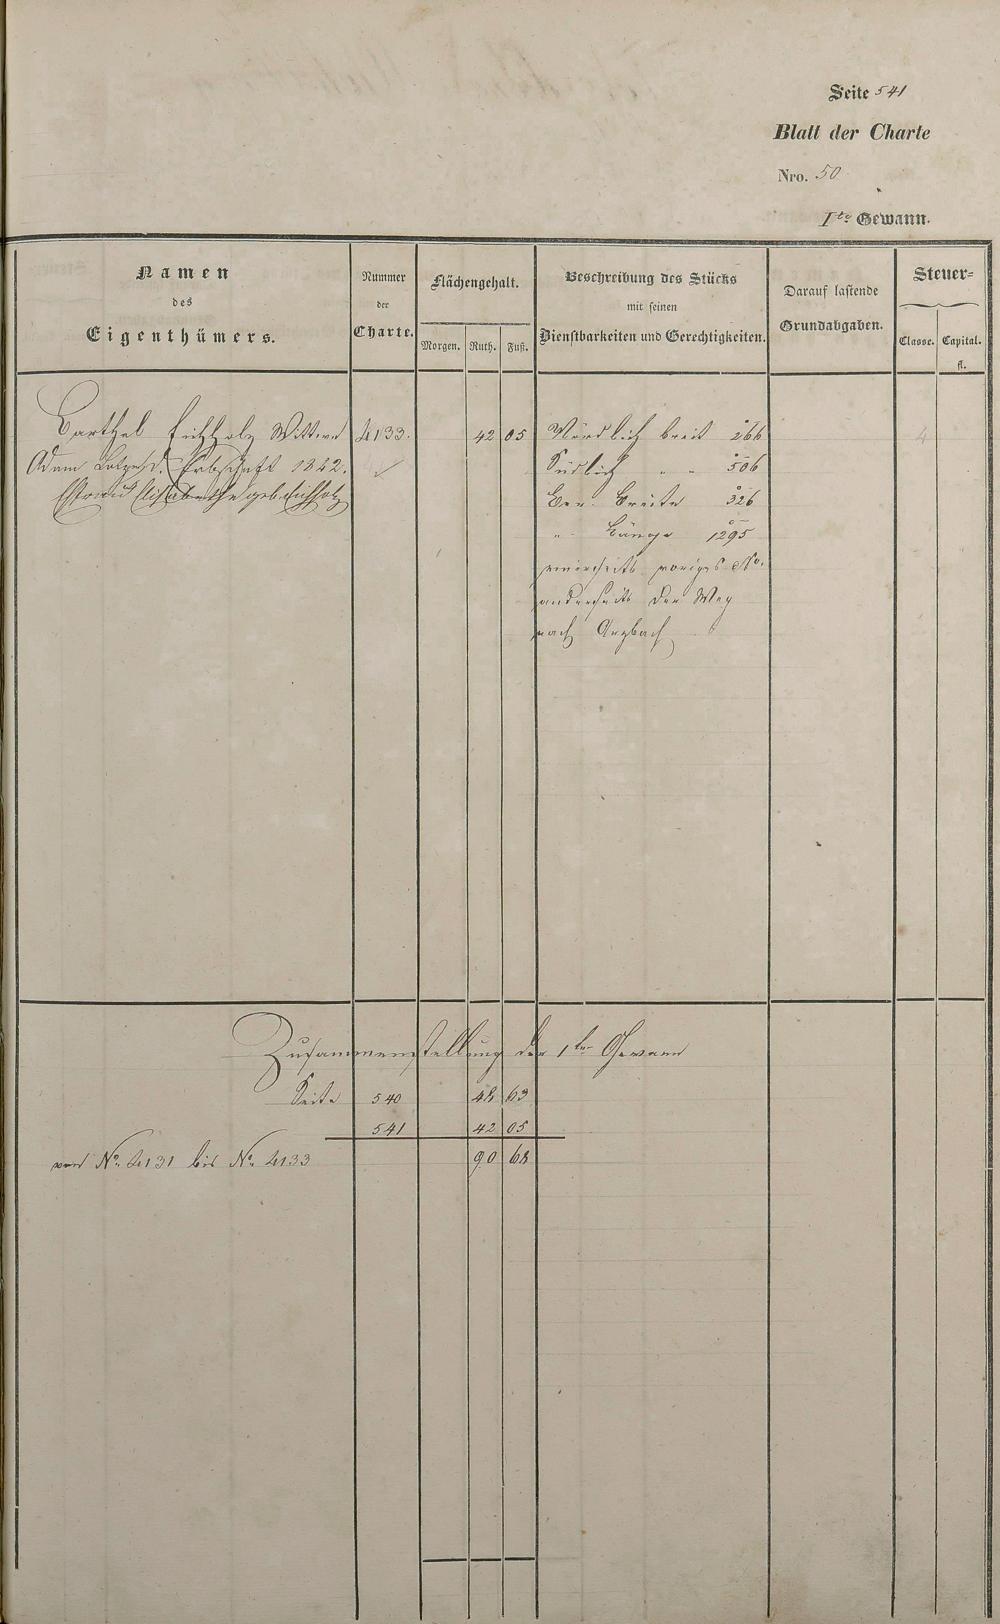 Seite 541
Blatt der Charte
Nro. 50
1te Gewann.
Namen
des
Eigenthümers.
Nummer
der
Charte.
Flächengehalt.
Morgen. Ruth. Fuß.
Beschreibung des Stücks
mit seinen
Dienstbarkeiten und Gerechtigkeiten.
Darauf lastende
Grundabgaben.
Steuer-
Classe. Capital.
fl.
Barthel Eichholz Wittwe 4133. 42 05 Nördlich breit 266 4
Adam Erbschaft 1842. Südlich " " 506
Elisabetha geb. Eichholz Ber. Breite 326
" Länge 1295
einerseits voriges No.
anderseits der Weg
nach
Zusammenstellung der 1ten Gewann
Seite 540 48 63
541 42 05
von No. 4131 bis No. 4133 90 68